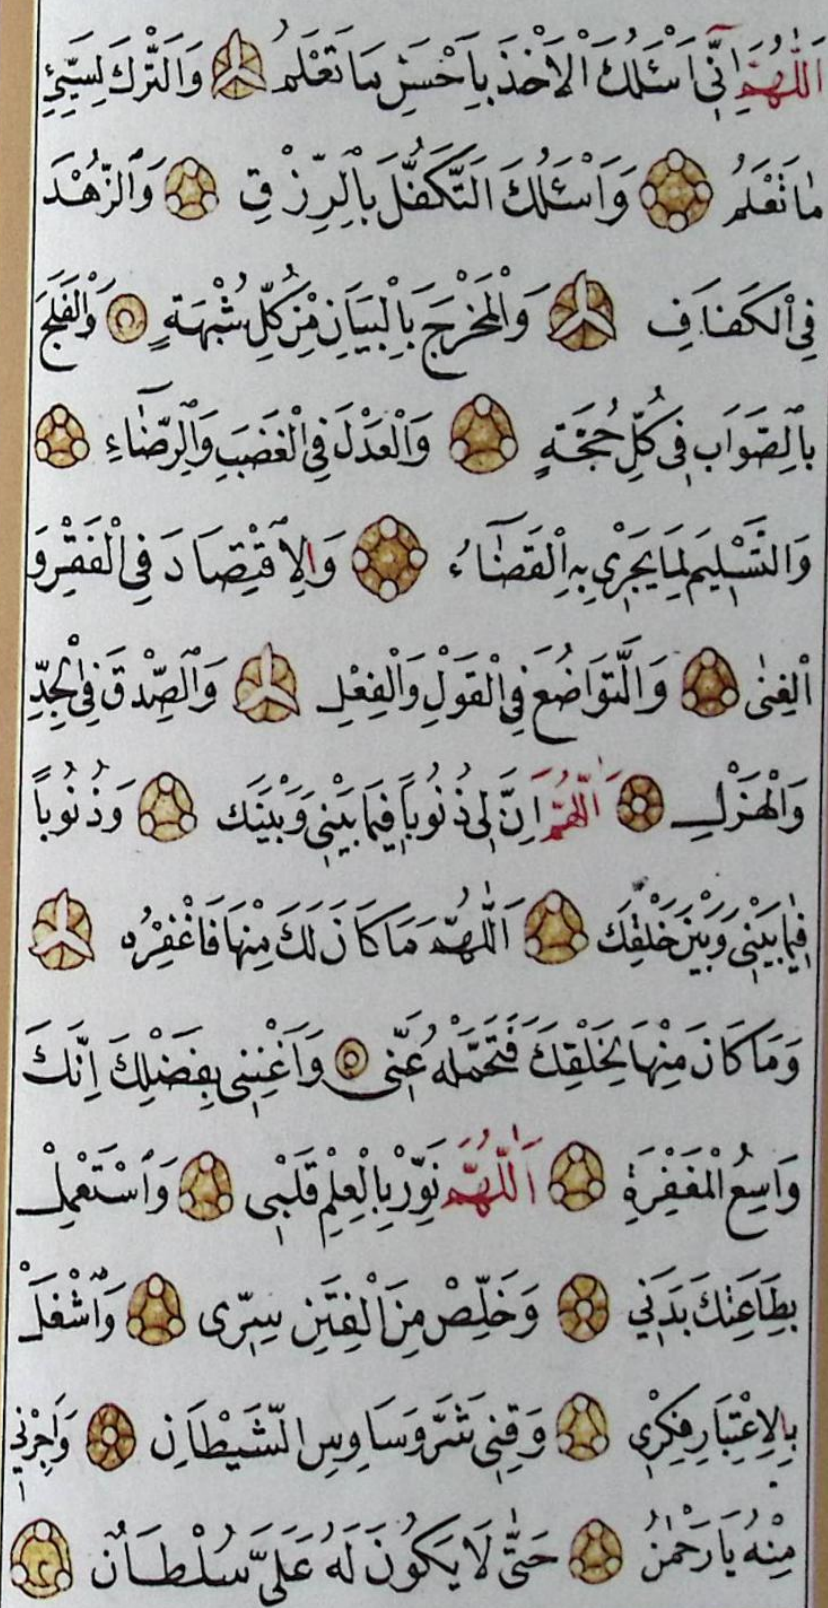 اَللّٰهُمَّ اِنِّٓي اَسْئَلُكَ الْاَخْذَ بِاَحْسَنِ مَا تَعْلَمُ وَالتَّرْكَ لِسَيِّئِ
مَا تَعْلَمُ وَاَسْئَلُكَ التَّكَفُّلَ بِالرِّزْقِ وَالزُّهْدَ
فِي الْكَفَافِ وَالْمَخْرَجَ بِالْبَيَانِ مِنْ كُلِّ شُبْهَةٍ وَالْفَلَجَ
بِالصَّوَابِ فِي كُلِّ حُجَّةٍ وَالْعَدْلَ فِي الْغَضَبِ وَالرِّضَاءِ
وَالتَّسْلِيمَ لِمَا يَجْرِي بِهِ الْقَضَاءُ وَالْاِقْتِصَادَ فِي الْفَقْرِ وَ
الْغِنٰى وَالتَّوَاضُعَ فِي الْقَوْلِ وَالْفِعْلِ وَالصِّدْقَ فِي الْجِدِّ
وَالْهَزْلِ اَللّٰهُمَّ اِنَّ لِي ذُنُوبًا فِيمَا بَيْنِي وَبَيْنَكَ وَذُنُوبًا
فِيمَا بَيْنِي وَبَيْنَ خَلْقِكَ اَللّٰهُمَّ مَا كَانَ لَكَ مِنْهَا فَاغْفِرْهُ
وَمَا كَانَ مِنْهَا لِخَلْقِكَ فَتَحَمَّلْهُ عَنِّي وَاَغْنِنِي بِفَضْلِكَ اِنَّكَ
وَاسِعُ الْمَغْفِرَةِ اَللّٰهُمَّ نَوِّرْ بِالْعِلْمِ قَلْبِي وَاسْتَعْمِلْ
بِطَاعَتِكَ بَدَنِي وَخَلِّصْ مِنَ الْفِتَنِ سِرِّي وَاشْغَلْ
بِالْاِعْتِبَارِ فِكْرِي وَقِنِي شَرَّ وَسَاوِسِ الشَّيْطَانِ وَاَجِرْنِي
مِنْهُ يَا رَحْمٰنُ حَتّٰى لَا يَكُونَ لَهُ عَلَيَّ سُلْطَانٌ